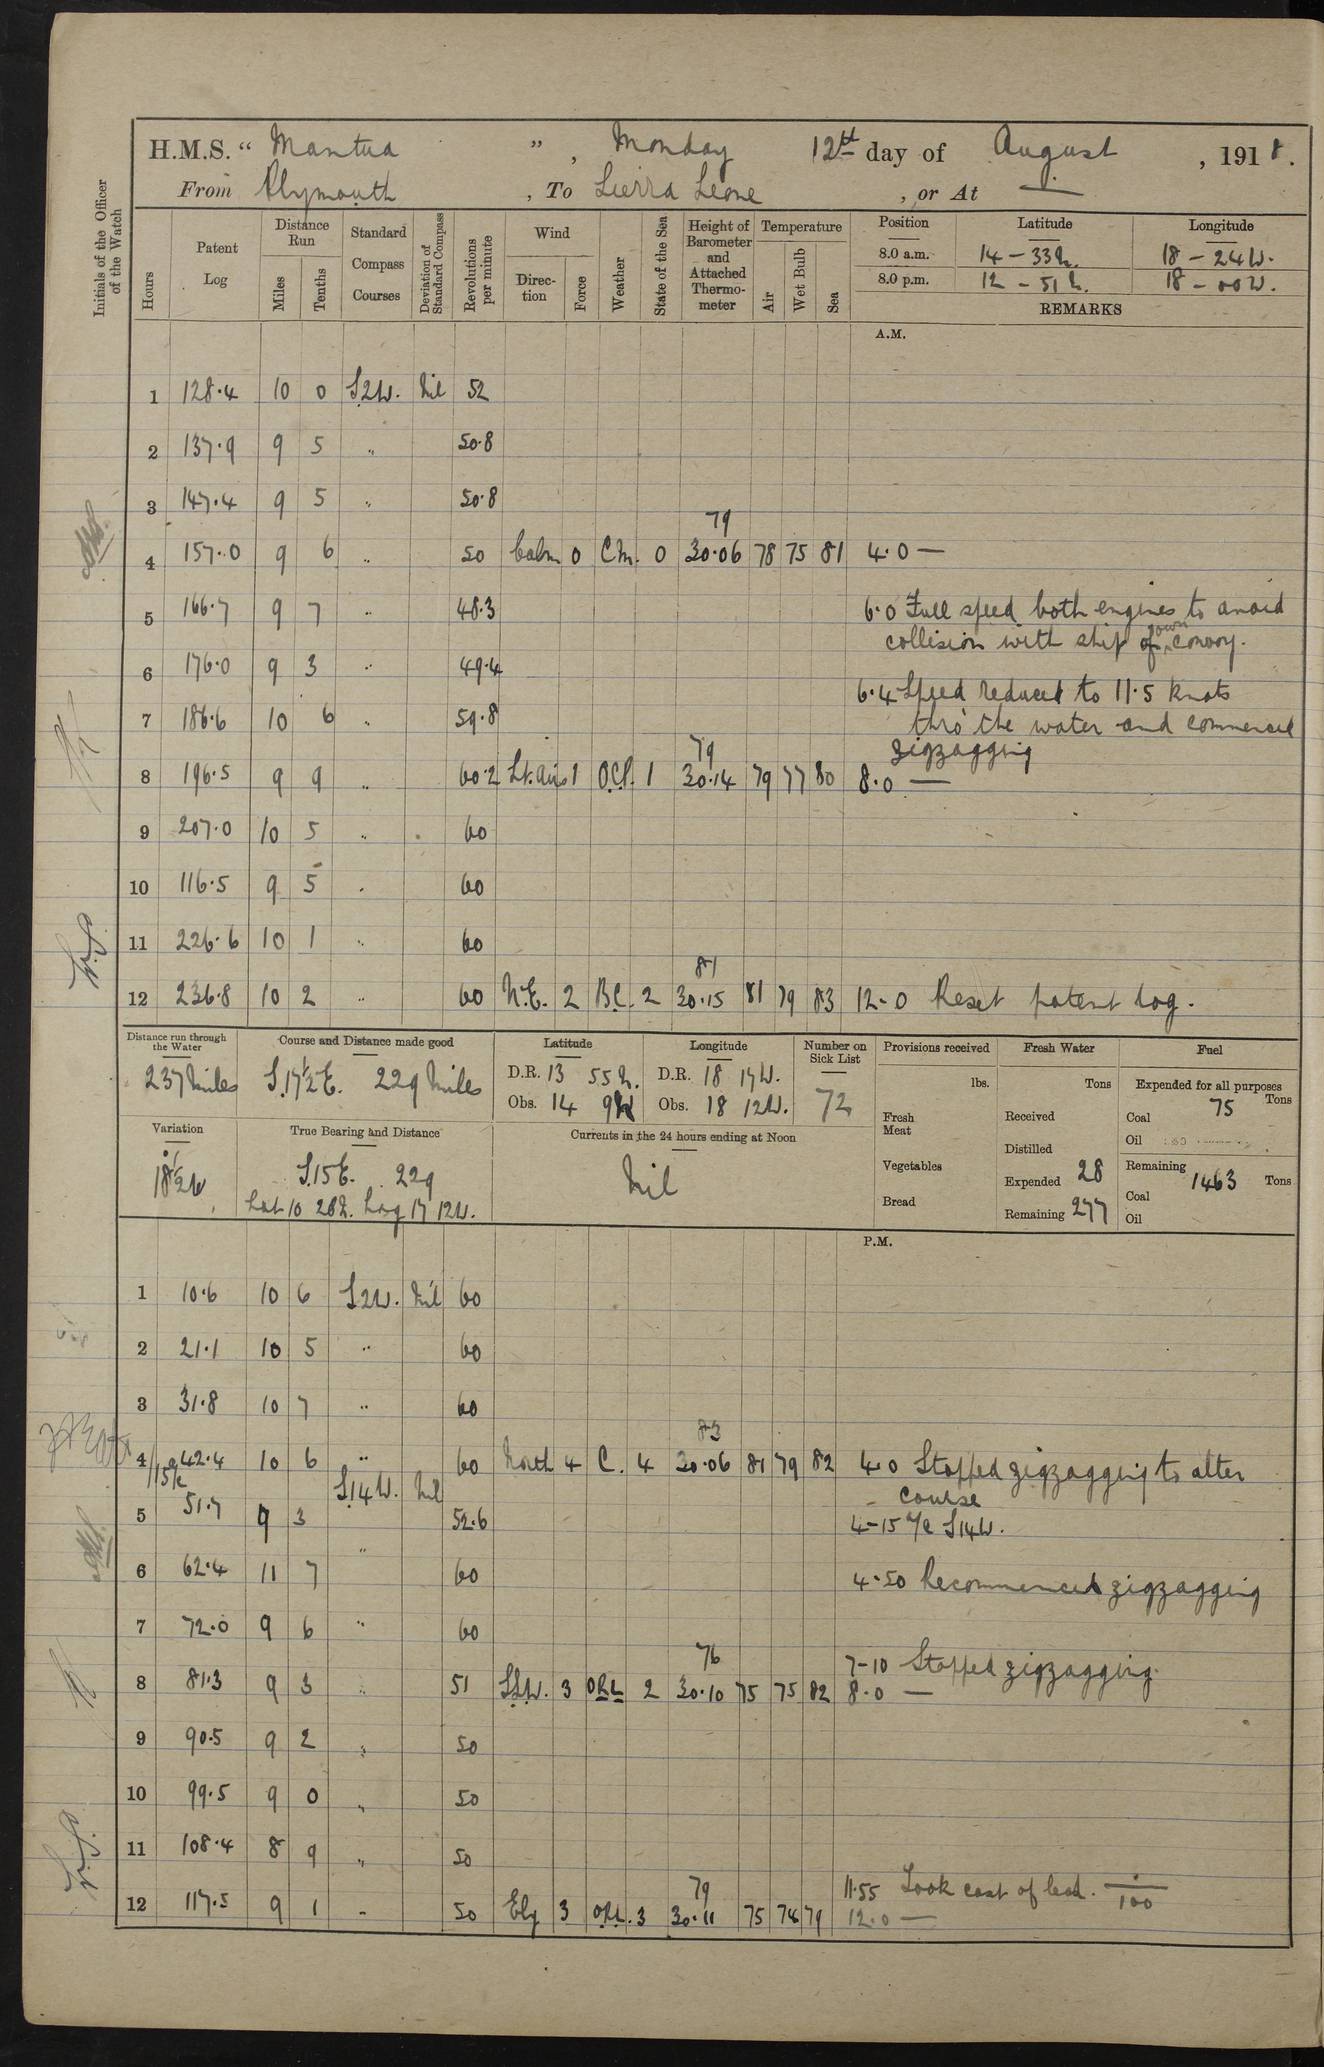 H.M.S. “ Mantua ” , Monday 12th day of August , 1918.
From Plymouth , To Sierra Leone , or At —
Initials of the Officer of the Watch
Hours
Patent Log
Distance Run
Miles
Tenths
Standard Compass Courses
Deviation of Standard Compass
Revolutions per minute
Wind
Direction
Force
Weather
State of the Sea
Height of Barometer and Attached Thermometer
Temperature
Air
Wet Bulb
Sea
Position Latitude Longitude
8.0 a.m. 14 – 33 N. 18 – 24 W.
8.0 p.m. 12 – 51 N. 18 – 00 W.
REMARKS
A.M.
1 128.4 10 0 S2W. Nil 52
2 137.9 9 5 " 50.8
3 147.4 9 5 " 50.8
79
4 157.0 9 6 " 50 Calm 0 C.M. 0 30.06 78 75 81 4.0 —
5 166.7 9 7 " 48.3 6.0 Full speed both engines to avoid
collision with ship of own convoy.
6 176.0 9 3 " 49.4
6.4 Speed reduced to 11.5 knots
7 186.6 10 6 " 59.8 thro' the water and commenced
79 zigzagging
8 196.5 9 9 " 60.2 Lt. airs 1 O.C.P. 1 30.14 79 77 80 8.0 —
9 207.0 10 5 " 60
10 116.5 9 5 " 60
11 226.6 10 1 " 60
81
12 236.8 10 2 " 60 N.E. 2 B.C. 2 30.15 81 79 83 12.0 Reset patent log.
Distance run through the Water
237 Miles
Course and Distance made good
S.17½E. 229 Miles
Latitude
D.R. 13 55 N.
Obs. 14 9 N
Longitude
D.R. 18 17 W.
Obs. 18 12 W.
Number on Sick List
72
Provisions received
lbs.
Fresh Meat
Vegetables
Bread
Fresh Water
Tons
Received
Distilled
Expended 28
Remaining 277
Fuel
Expended for all purposes
Tons
Coal 75
Oil
Remaining 1463 Tons
Coal
Oil
Variation
18½W
True Bearing and Distance
S.15E. 229
Lat 10 26N. Long 17 12W.
Currents in the 24 hours ending at Noon
Nil
P.M.
1 10.6 10 6 S2W. Nil 60
2 21.1 10 5 " 60
3 31.8 10 7 " 60
83
4 42.4 10 6 " 60 North 4 C. 4 30.06 81 79 82 4.0 Stopped zigzagging to alter
S14W. Nil course
5 51.7 9 3 52.6 4–15 a/c S14W.
6 62.4 11 7 " 60 4.50 Recommenced zigzagging
7 72.0 9 6 " 60
76 7–10 Stopped zigzagging.
8 81.3 9 3 " 51 SSW. 3 O.R.L. 2 30.10 75 75 82 8.0 —
9 90.5 9 2 " 50
10 99.5 9 0 " 50
11 108.4 8 9 " 50
79 11.55 Took cast of lead. 100
12 117.5 9 1 " 50 Ely 3 3 30.11 75 74 79 12.0 —